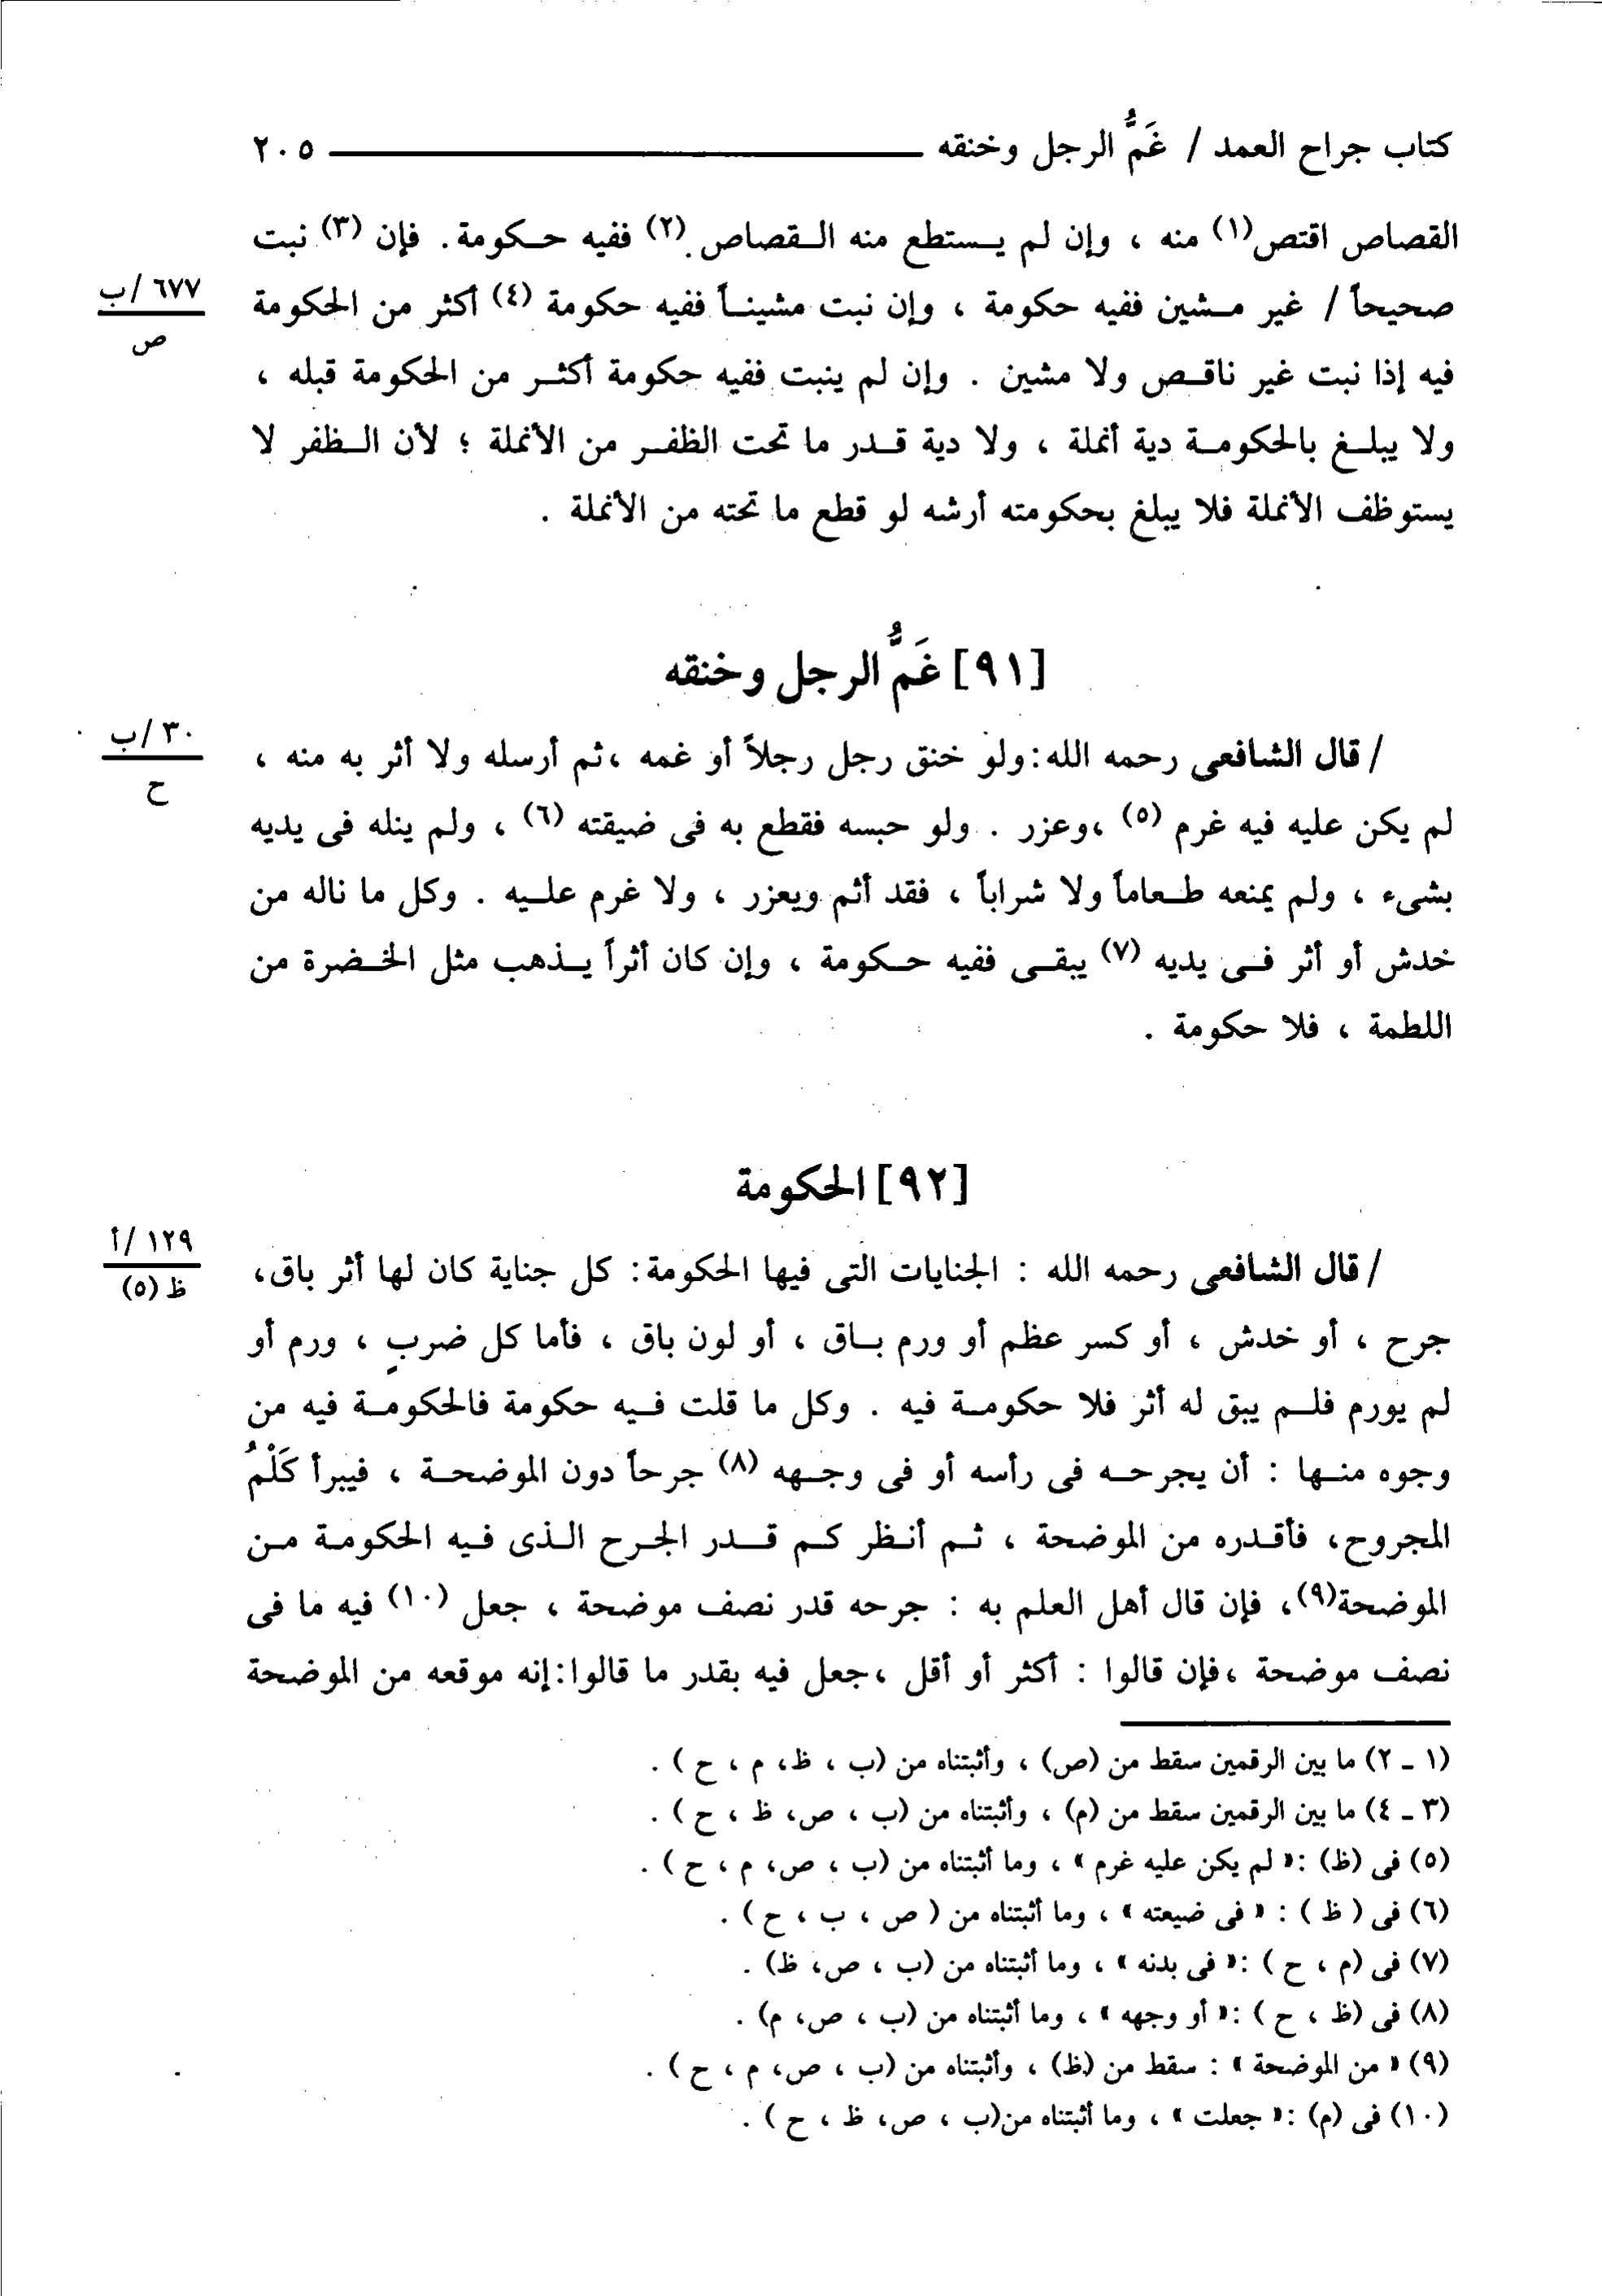 كتاب جراح العمد / غَمُّ الرجل وخنقه ٢٠٥
القصاص اقتص(١) منه ، وإن لم يستطع منه القصاص (٢) ففيه حكومة . فإن (٣) نبت
٦٧٧/ب
ص
صحيحاً / غير مشين ففيه حكومة ، وإن نبت مشيناً ففيه حكومة (٤) أكثر من الحكومة
فيه إذا نبت غير ناقص ولا مشين . وإن لم ينبت ففيه حكومة أكثر من الحكومة قبله ،
ولا يبلغ بالحكومة دية أنملة ، ولا دية قدر ما تحت الظفر من الأنملة ؛ لأن الظفر لا
يستوظف الأنملة فلا يبلغ بحكومته أرشه لو قطع ما تحته من الأنملة .
[٩١] غَمُّ الرجل وخنقه
٣٠/ب
ح
/ قال الشافعى رحمه الله : ولو خنق رجل رجلاً أو غمه ، ثم أرسله ولا أثر به منه ،
لم يكن عليه فيه غرم (٥) ، وعزر . ولو حبسه فقطع به فى ضيقته (٦) ، ولم ينله فى يديه
بشىء ، ولم يمنعه طعاماً ولا شراباً ، فقد أثم ويعزر ، ولا غرم عليه . وكل ما ناله من
خدش أو أثر فى يديه (٧) يبقى ففيه حكومة ، وإن كان أثراً يذهب مثل الخضرة من
اللطمة ، فلا حكومة .
[٩٢] الحكومة
١٢٩/أ
ظ (٥)
/ قال الشافعى رحمه الله : الجنايات التى فيها الحكومة : كل جناية كان لها أثر باق،
جرح ، أو خدش ، أو كسر عظم أو ورم باق ، أو لون باق ، فأما كل ضربٍ ، ورم أو
لم يورم فلم يبق له أثر فلا حكومة فيه . وكل ما قلت فيه حكومة فالحكومة فيه من
وجوه منها : أن يجرحه فى رأسه أو فى وجهه (٨) جرحاً دون الموضحة ، فيبرأ كَلْمُ
المجروح، فأقدره من الموضحة ، ثم أنظر كم قدر الجرح الذى فيه الحكومة من
الموضحة(٩)، فإن قال أهل العلم به : جرحه قدر نصف موضحة ، جعل (١٠) فيه ما فى
نصف موضحة ، فإن قالوا : أكثر أو أقل ، جعل فيه بقدر ما قالوا : إنه موقعه من الموضحة
(١ ـ ٢) ما بين الرقمين سقط من (ص) ، وأثبتناه من (ب ، ظ، م ، ح ) .
(٣ ـ ٤) ما بين الرقمين سقط من (م) ، وأثبتناه من (ب ، ص، ظ ، ح ) .
(٥) فى (ظ) :« لم يكن عليه غرم » ، وما أثبتناه من (ب ، ص، م ، ح ) .
(٦) فى ( ظ ) : « فى ضيعته » ، وما أثبتناه من ( ص ، ب ، ح ) .
(٧) فى (م ، ح ) :« فى بدنه » ، وما أثبتناه من (ب ، ص، ظ) .
(٨) فى (ظ ، ح ) :« أو وجهه » ، وما أثبتناه من (ب ، ص، م) .
(٩) « من الموضحة » : سقط من (ظ) ، وأثبتناه من (ب ، ص، م ، ح ) .
(١٠) فى (م) :« جعلت » ، وما أثبتناه من(ب ، ص، ظ ، ح ) .